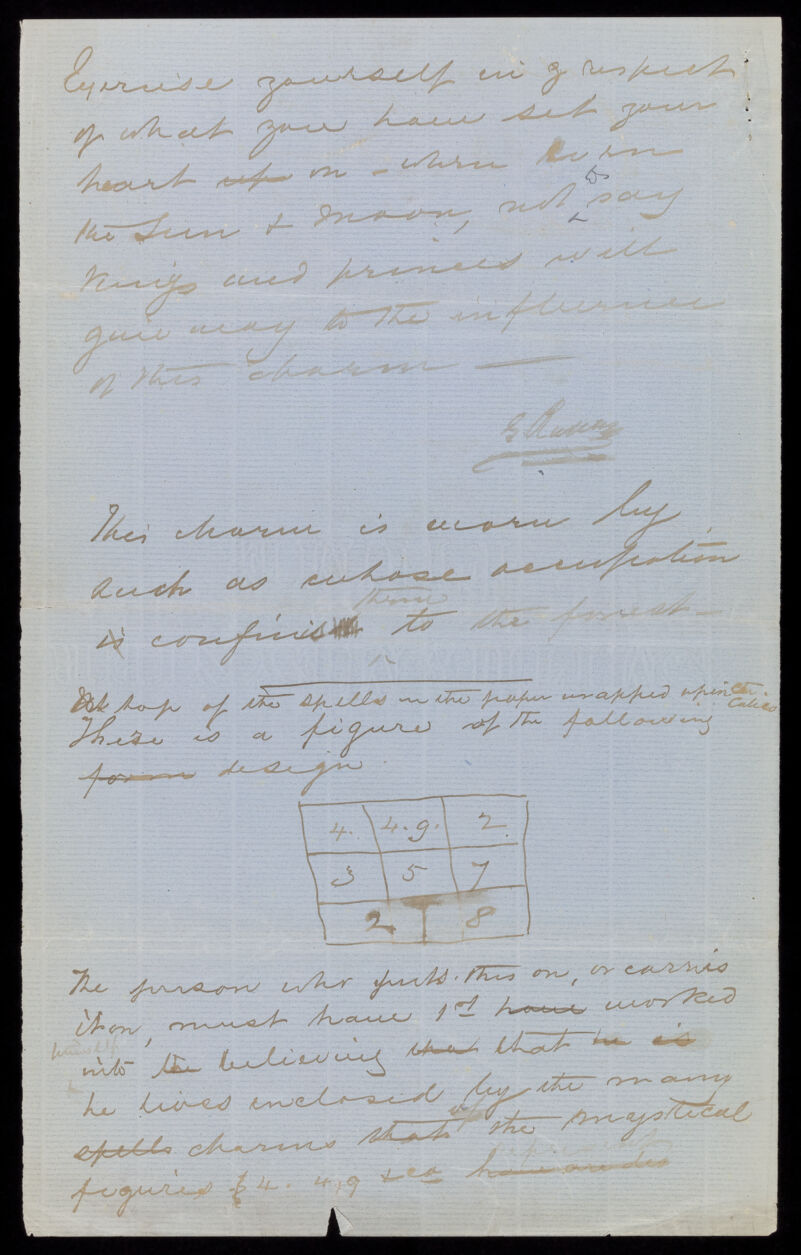 Exercise yourself in respect
of what you have set your
heart up on - when even
the Sun & Moon, not to say
Kings and princes will
give way to the influence
of this charm —
This charm is worn by
such as whose occupation
is confines to the forest —
them
top of the spells in the paper wrapped up in the Calico
There is a figure of the following
form design
4. 4.9. 2.
3 5 7
2 8
The person who puts this on, or carries
it on, must have 1st have worked
himself
into the believing that that he is
he lives enclosed by the many
spells charms that the mystical
figures 4. 4.9 &ca
represent